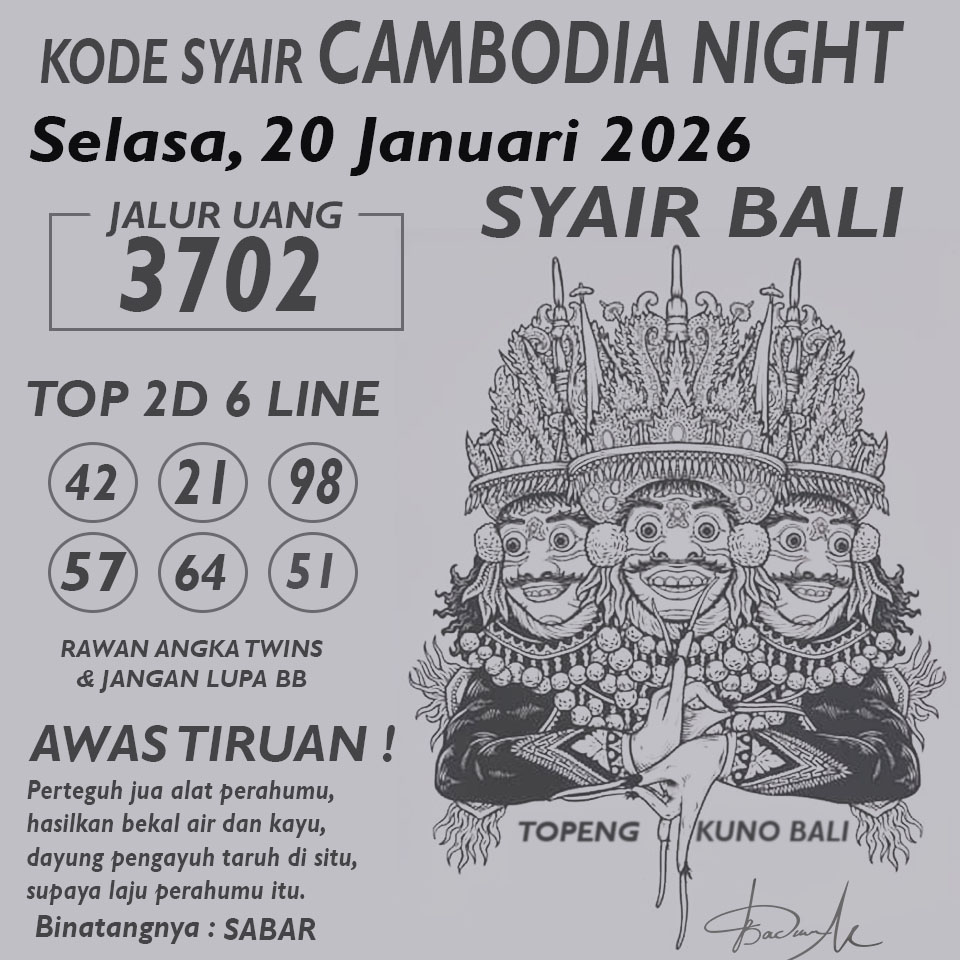 KODE SYAIR CAMBODIA NIGHT
Selasa, 20 Januari 2026
SYAIR BALI
JALUR UANG
3702
TOP 2D 6 LINE
42 21 98
57 64 51
RAWAN ANGKA TWINS
& JANGAN LUPA BB
AWAS TIRUAN !
Perteguh jua alat perahumu,
hasilkan bekal air dan kayu,
dayung pengayuh taruh di situ,
supaya laju perahumu itu.
Binatangnya : SABAR
TOPENG KUNO BALI